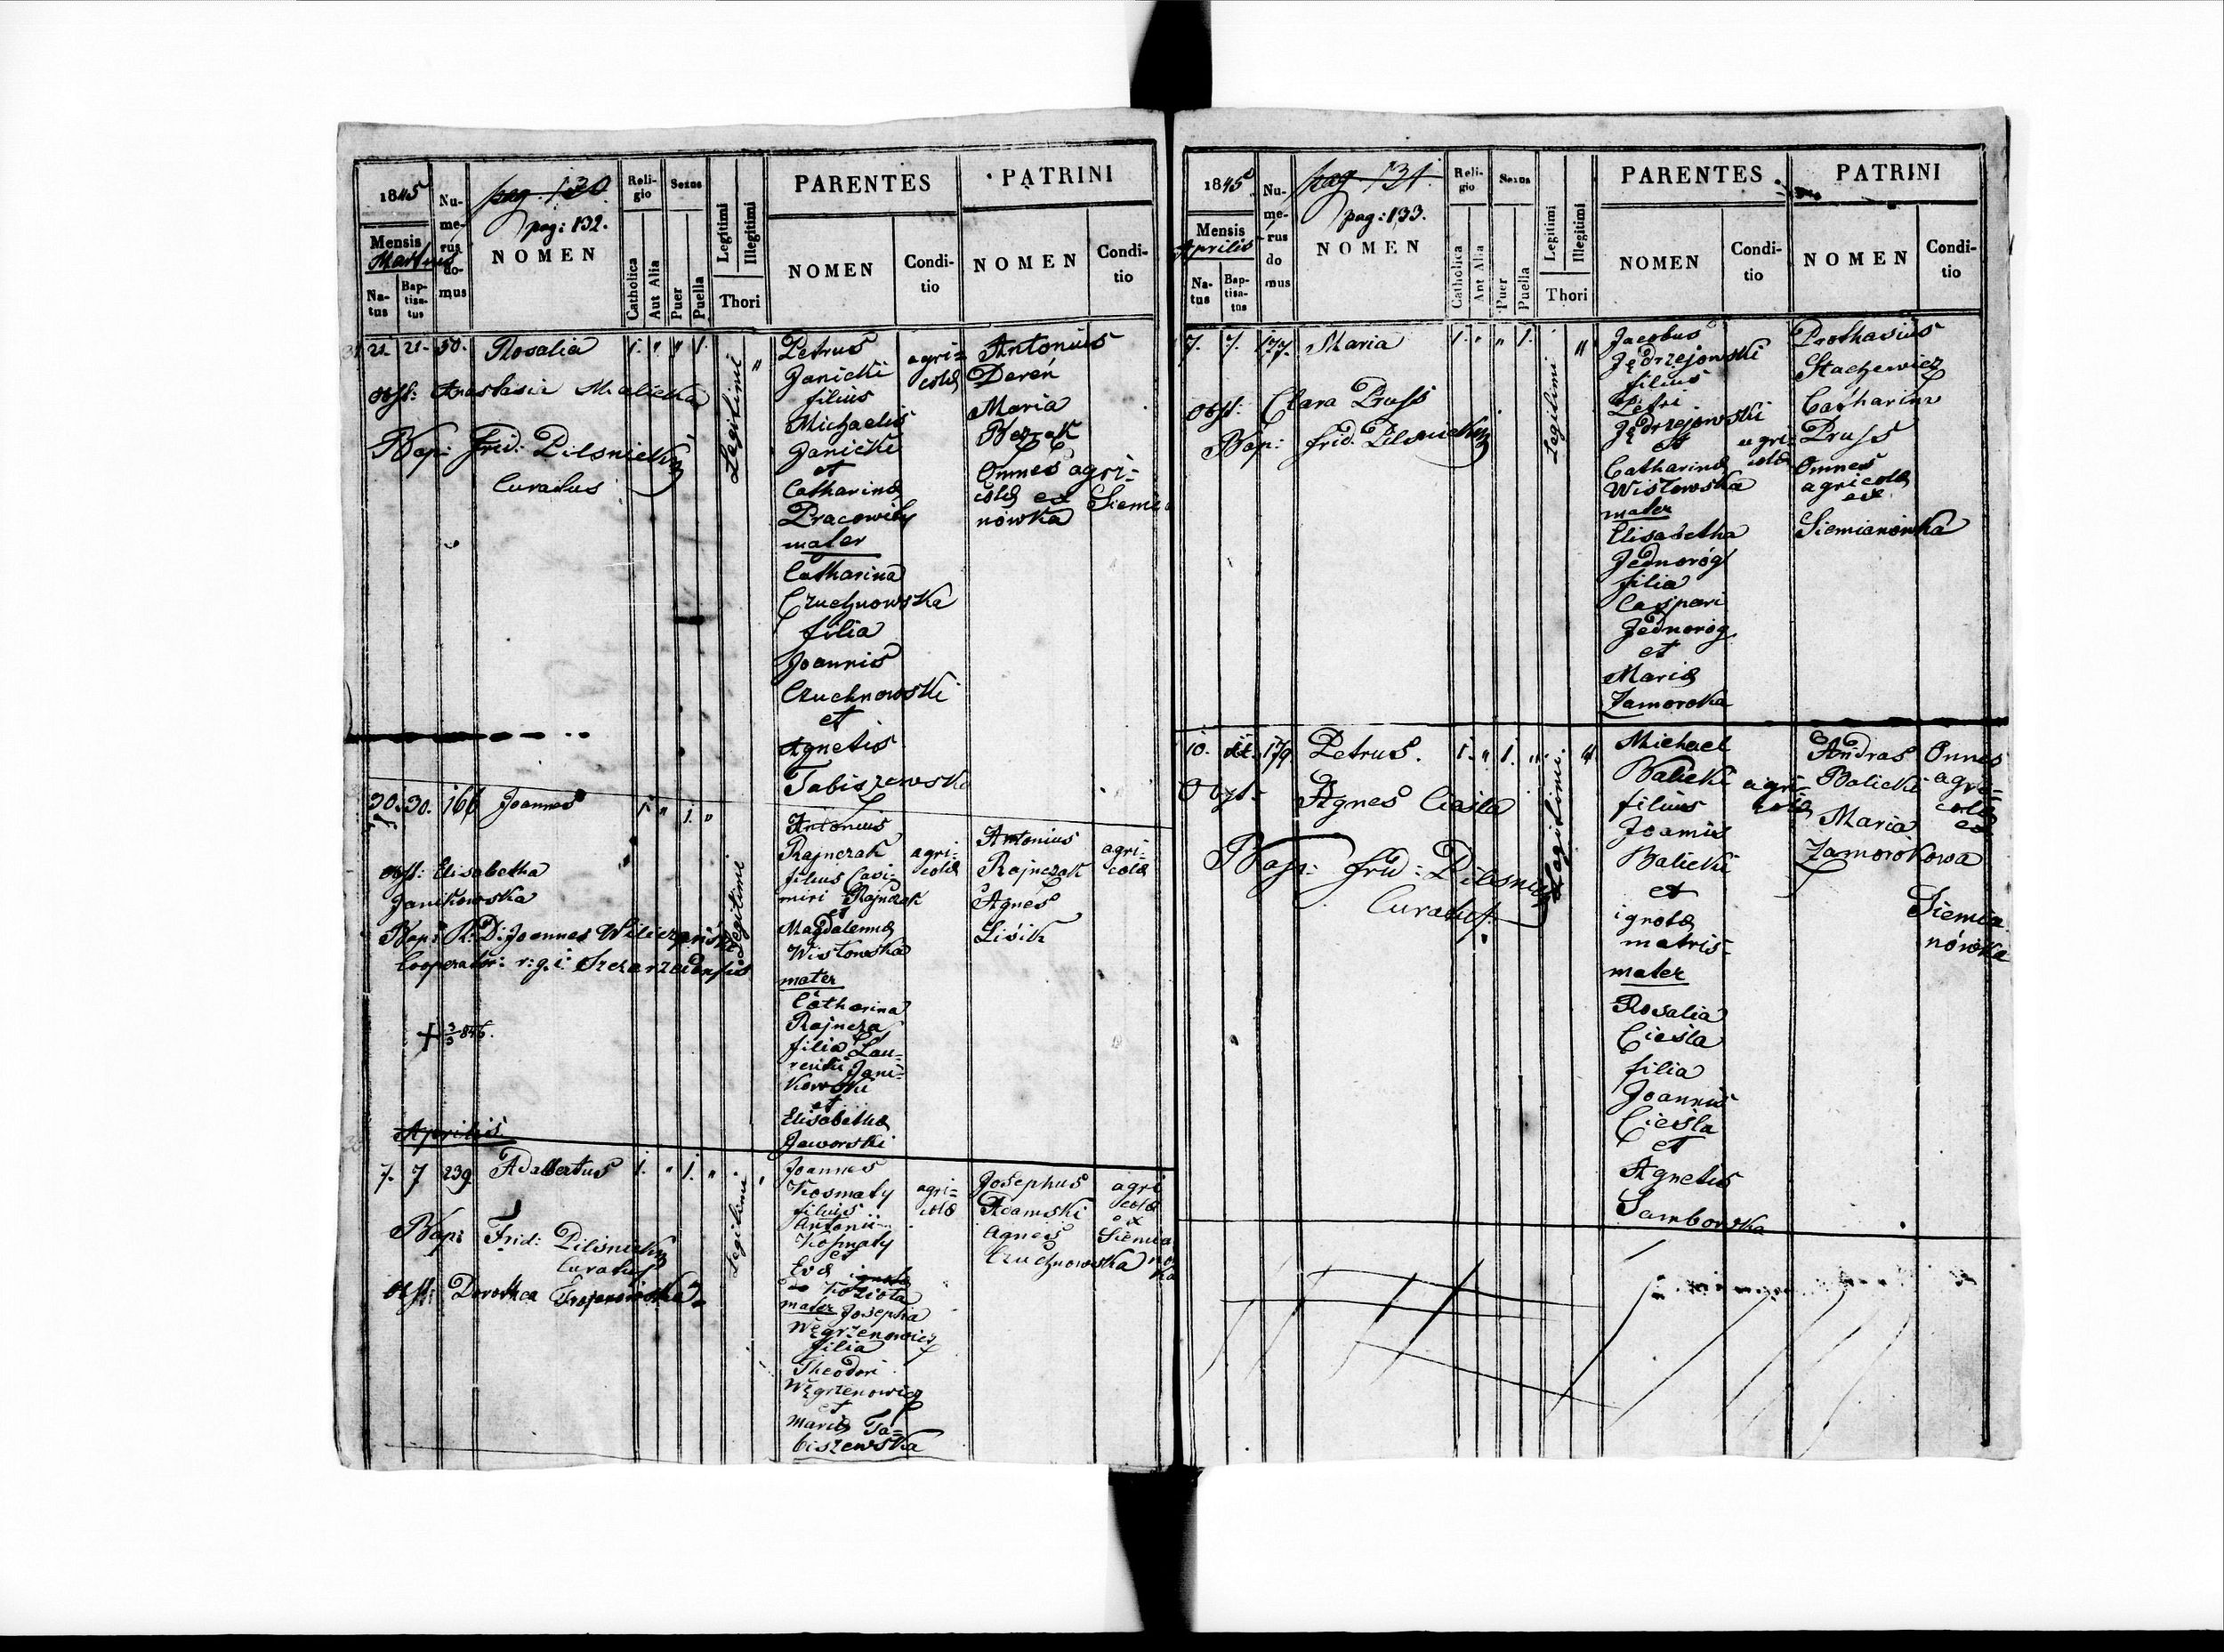 1845
Mensis
Martius
Na-
tus
Bap-
tisa-
tus
Nu-
me-
rus
do-
mus
pag. 130
pag: 132.
NOMEN
Reli-
gio
Catholica
Aut Alia
Sexus
Puer
Puella
Legitimi
Illegitimi
Thori
PARENTES
NOMEN
Condi-
tio
PATRINI
NOMEN
Condi-
tio
21. 21. 50. Rosalia 1. " " 1.
Obst: Anastasia Malicka
Bap: Frid: Pilsnicky
Curatus
Legitimi "
Petrus
Janicki
filius
Michaelis
Janicki
et
Catharinæ
Pracowity
mater
Catharina
Czuchnowska
filia
Joannis
Czuchnowski
et
Agnetis
Tabiszewska
agri=
colæ
Antonius
Dereń
Maria
Omnes agri-
colæ ex Siemia
nówka
30. 30. 166 Joannes 1. " 1. "
Obst: Elisabetha
Janikowska
Bap: R: D: Joannes
Cooperator: r: g. i:
+ 3/3 846.
Legitimi
Antonius
Rajnczak
filius Casi-
miri Rajnczak
et
Magdalennæ
Wisłowska
mater
Catharina
Rajncza
filia Lau=
rentii Jani=
kowski
et
Elisabethæ
Jaworski
agri=
colæ
Antonius
Rajnczak
Agnes
Lisik
agri=
colæ
Aprilis
7. 7 239 Adalbertus 1. " 1. "
Bap: Frid: Pilsnicky
Curatus
Obst: Dorothea
Legitimi
Joannes
Kosmaty
filius
Antonii
Kosmaty
et
Evæ
mater Josepha
Węgrzenowicz
filia
Theodori
Węgrzenowicz
et
Mariæ Ta=
biszewska
agri=
colæ
Josephus
Adamski
Agnes
Czuchnowska
agri
colæ
ex
Siemia
nów
ka
1845
Mensis
Aprilis
Na-
tus
Bap-
tisa-
tus
Nu-
me-
rus
do
mus
pag 131.
pag: 133.
NOMEN
Reli-
gio
Catholica
Aut Alia
Sexus
Puer
Puella
Legitimi
Illegitimi
Thori
PARENTES
NOMEN
Condi-
tio
PATRINI
NOMEN
Condi-
tio
7. 7. 177. Maria 1. " " 1.
Obst: Clara Pruss
Bap: Frid. Pilsnicky
Legitimi "
Jacobus
Jędrzejowski
filius
Petri
Jędrzejowski
et
Catharinæ
Wisłowska
mater
Elisabetha
Jednoróg
filia
Caspari
Jednoróg
et
Mariæ
Zamoroka
agri
colæ
Prothasius
Stachewicz
Catharina
Pruss
Omnes
agricolæ
ex
Siemianówka
10. 179 Petrus. 1. " 1. "
Obst: Agnes Ciesla
Bap: Frid: Pilsnicky
Curatus
Legitimi "
Michael
Balicki
filius
Joannis
Balicki
et
ignotæ
matris
mater
Rosalia
Ciesla
filia
Joannis
Ciesla
et
Agnetis
Samborska
agri
colæ
Andras
Balicki
Maria
Zamorokowa
Omnes
agri=
colæ
ex
Siemia
nówka